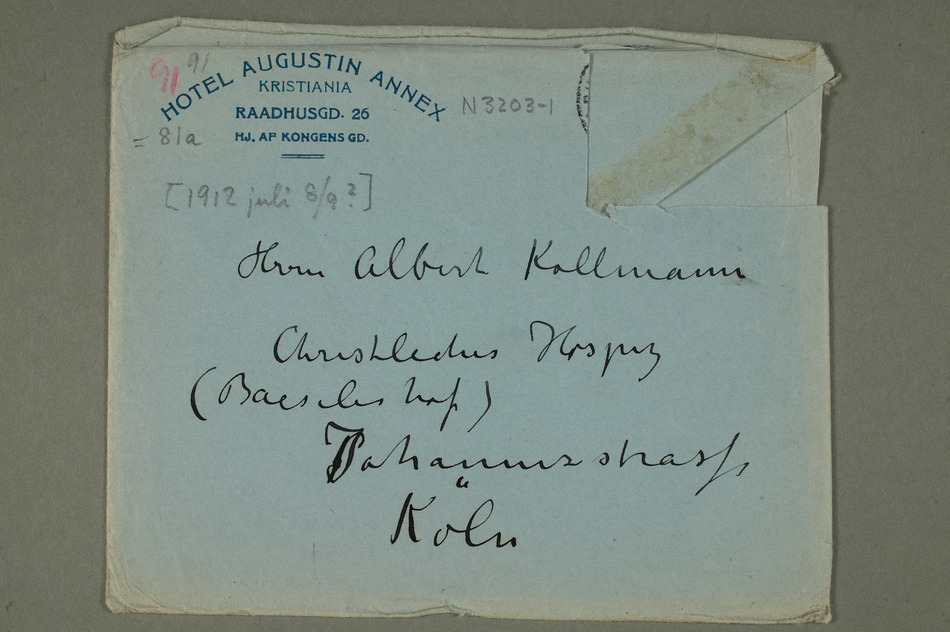 91 91
HOTEL AUGUSTIN ANNEX
KRISTIANIA
RAADHUSGD. 26
HJ. AF KONGENS GD.
N3203-1
= 81a
[1912 juli 8/9?]
Herrn Albert Kollmann
Christliches Hospiz
(Baeselerhof)
Johannisstrasse
Köln